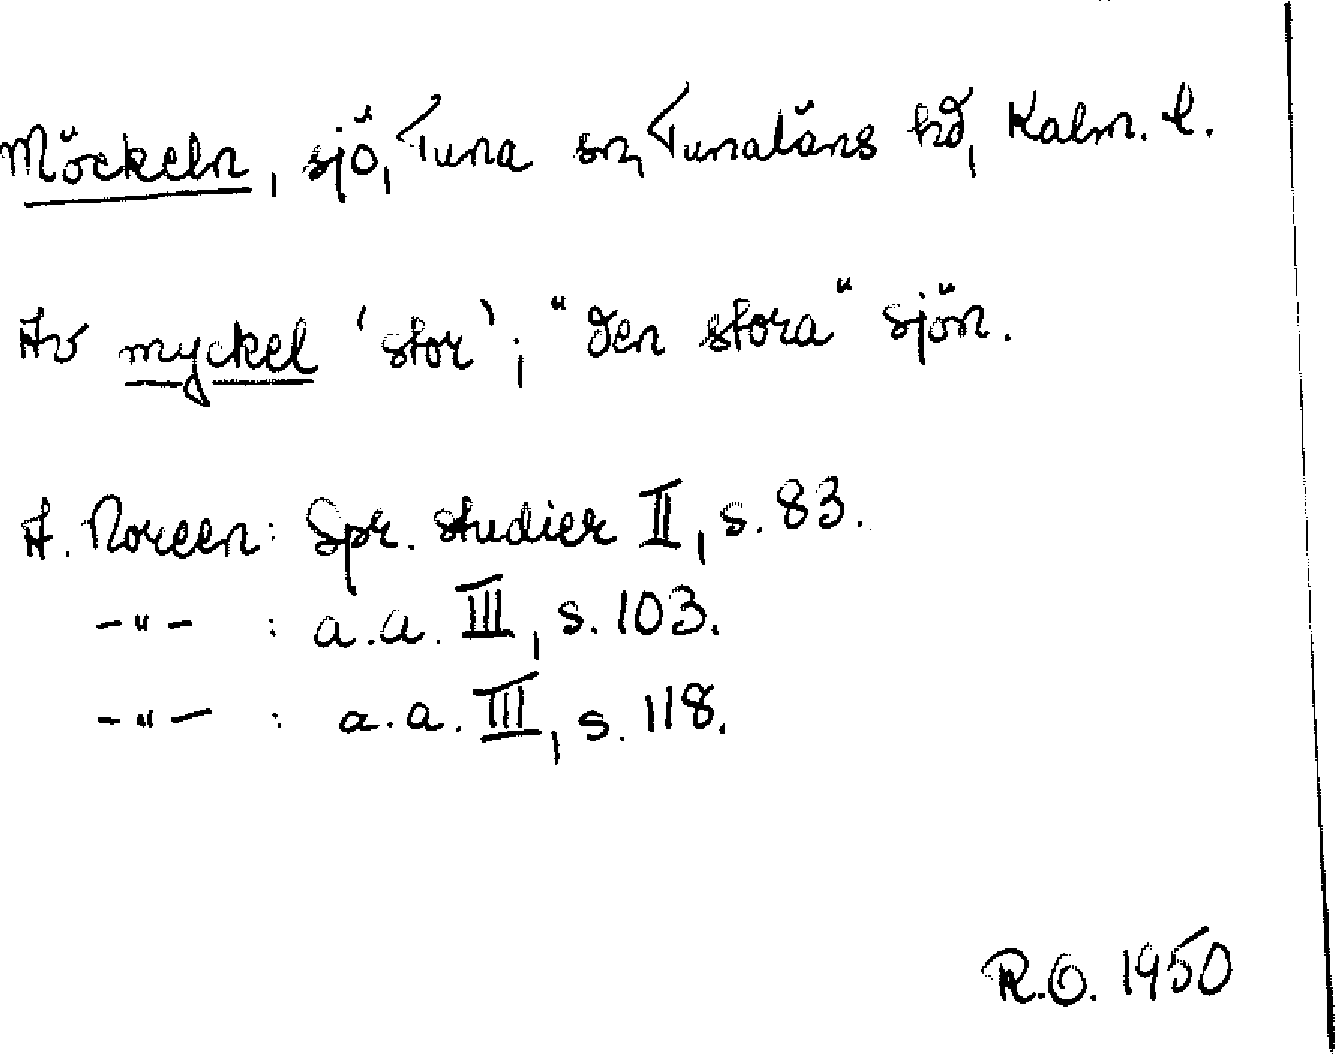 Möckeln, sjö, Tuna sn, Tunaläns hd, Kalm. l.
Av myckel 'stor'; "den stora" sjön.
A. Noreen: Spr. studier II, s. 83.
-"- : a.a. III, s. 103.
-"- : a.a. III, s. 118.
R.O. 1950